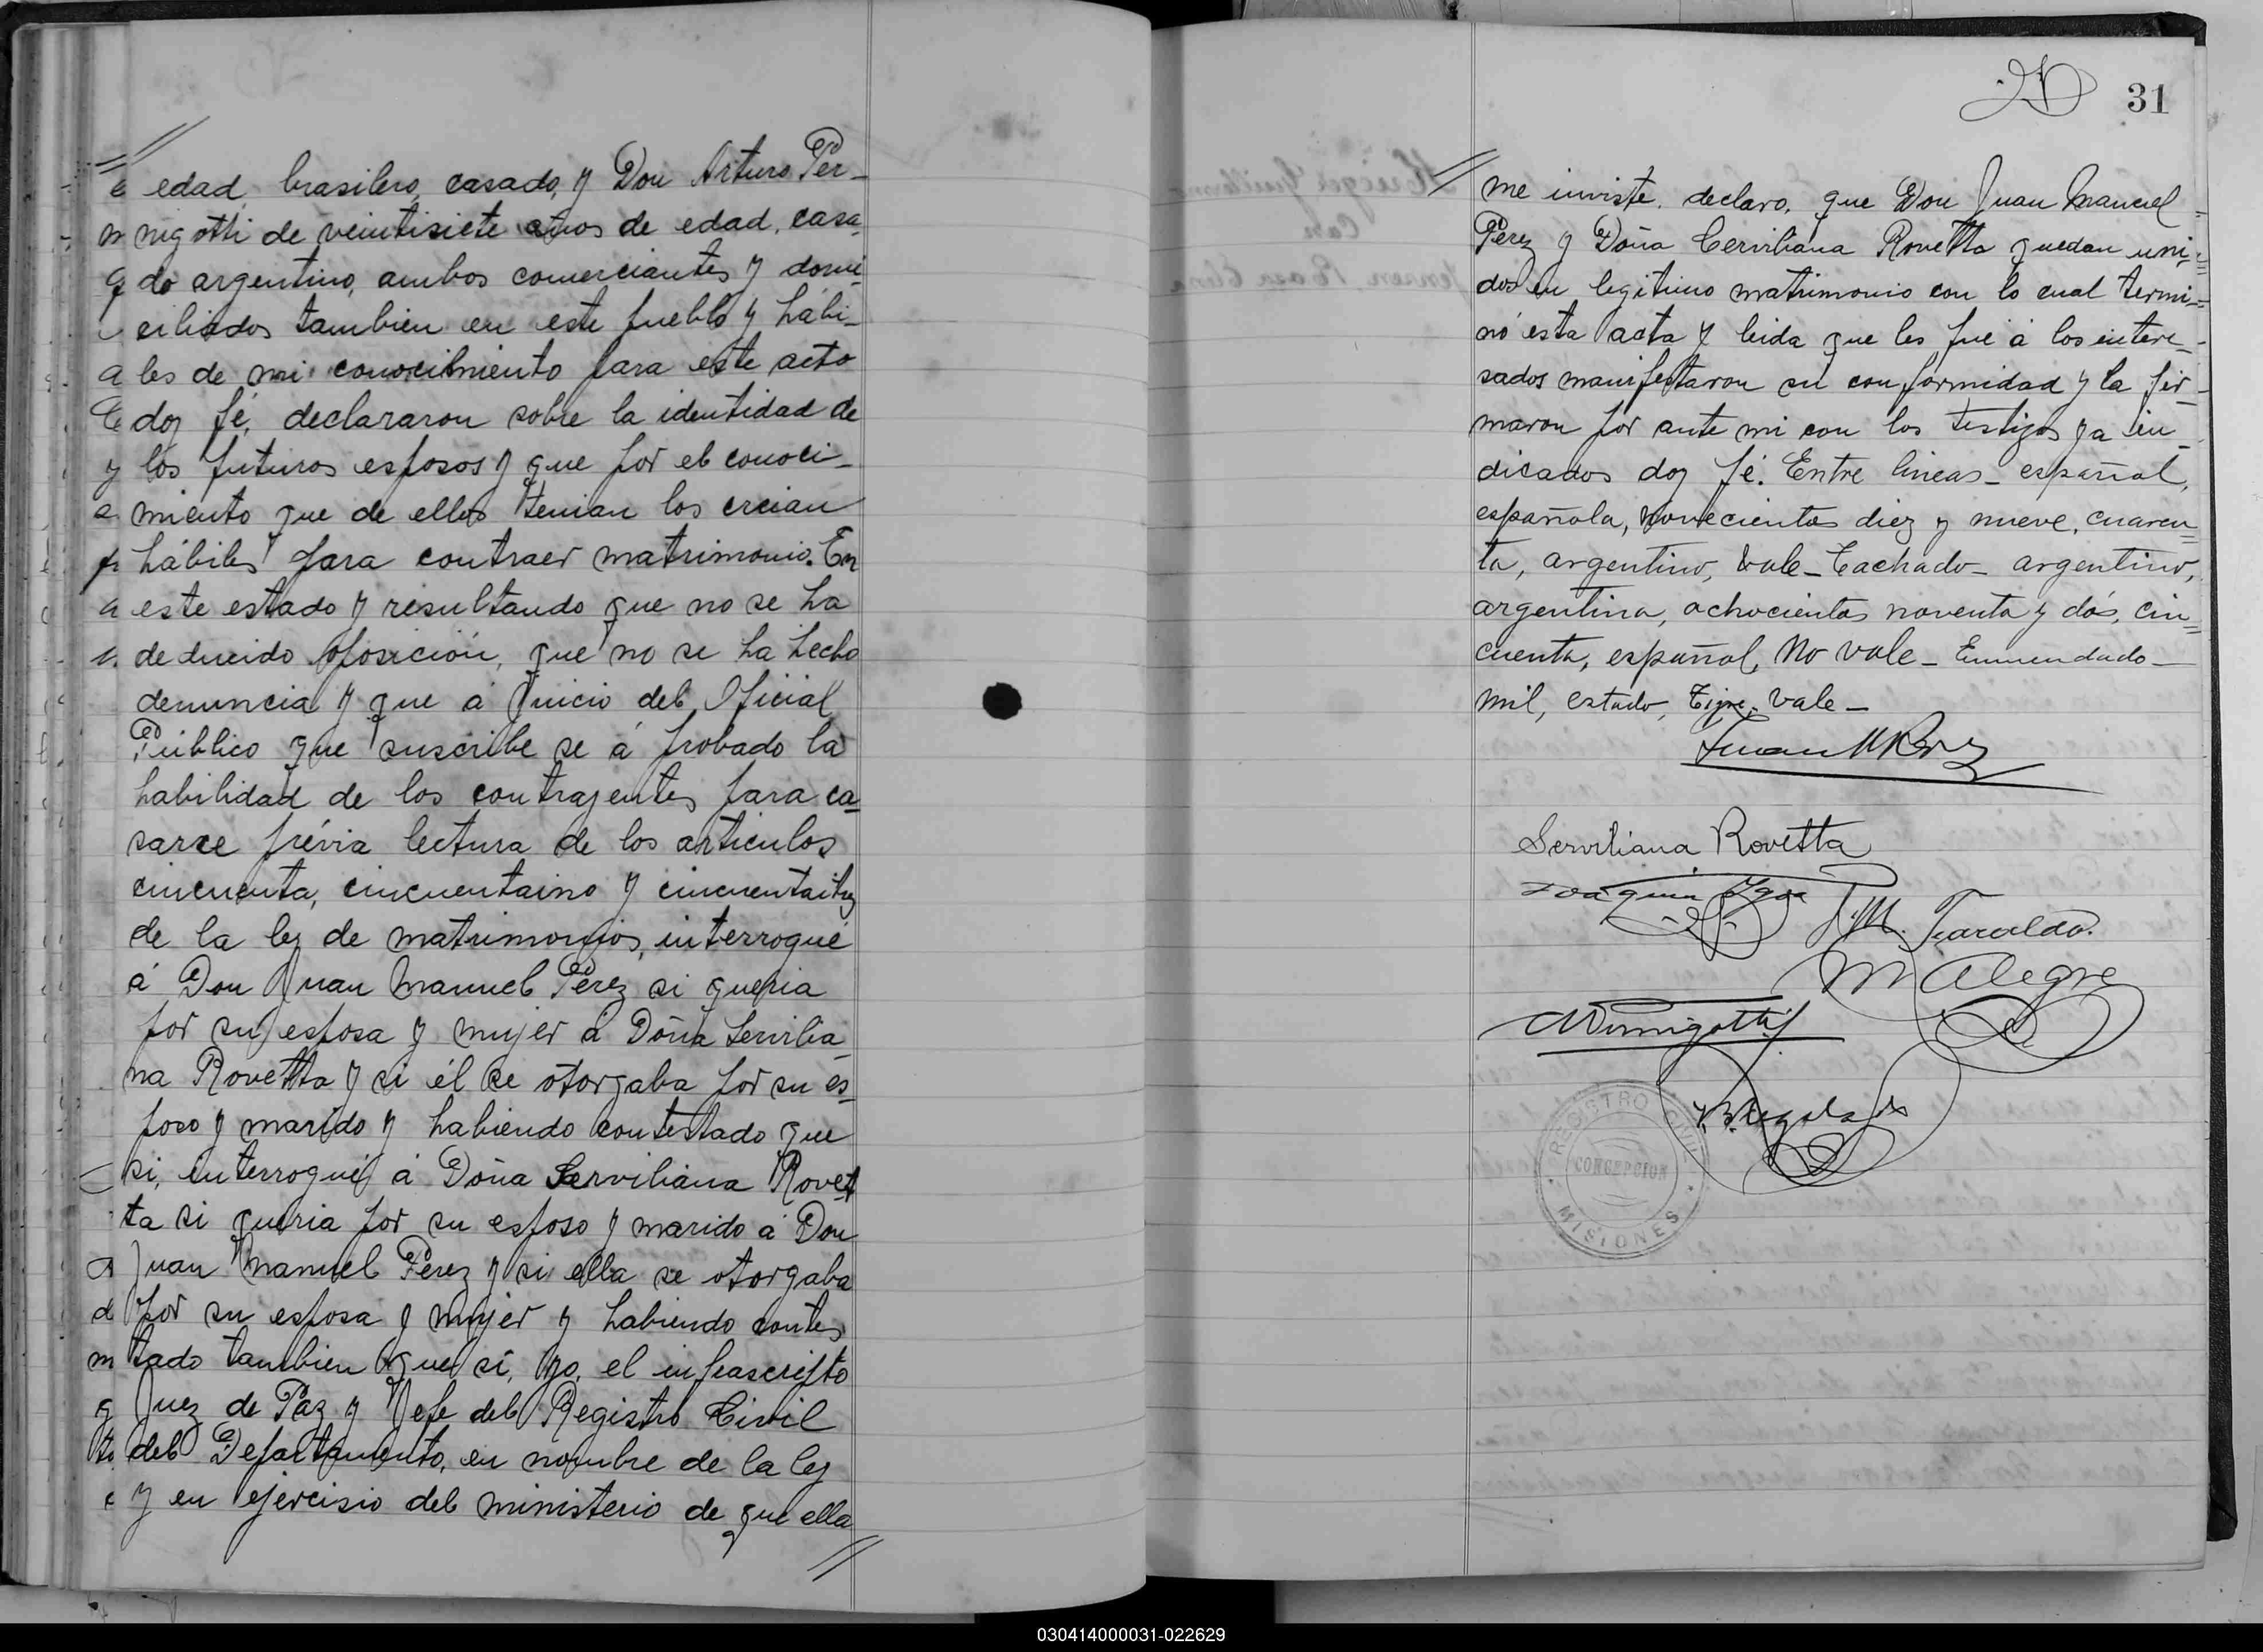 edad, brasilero, casado, y Don Arturo Per-
nigotti de veintisiete años de edad, casa-
do argentino, ambos comerciantes y domi-
ciliados tambien en este pueblo y hábi-
les de mi conocimiento para este acto
doy fé, declararon sobre la identidad de
los futuros esposos y que por el conoci-
miento que de ellos tenian los creian
hábiles para contraer matrimonio. En
este estado y resultando que no se ha
deducido oposición, que no se ha hecho
denuncia y que á juicio del Oficial
Público que suscribe se á probado la
habilidad de los contrayentes para ca-
sarce prévia lectura de los articulos
cincuenta, cincuentaiuno y cincuentaitres
de la ley de matrimonios, interrogué
á Don Juan Manuel Pérez si queria
por su esposa y mujer á Doña Servilia-
na Rovetta y si él se otorgaba por su es-
poso y marido y habiendo contestado que
si, interrogué á Doña Serviliana Rovet
ta si queria por su esposo y marido á Don
Juan Manuel Pérez y si ella se otorgaba
por su esposa y mujer y habiendo contes
tado tambien que si, yo, el infrascripto
Juez de Paz y Jefe del Registro Civil
del Departamento, en nombre de la ley
y en ejercisio del ministerio de que ella
31
me inviste, declaro, que Don Juan Manuel
Pérez y Doña Cerviliana Rovetta quedan uni-
dos en legitimo matrimonio con lo cual termi-
nó esta acta y leida que les fué á los intere-
sados manifestaron su conformidad y la fir-
maron por ante mi con los testigos ya in-
dicados doy fé. Entre lineas - español,
española, novecientos diez y nueve, cuaren
ta, argentino, vale - Tachado - argentino,
argentina, ochocientos noventa y dós, cin-
cuenta, español, No vale - Enmendado -
mil, estado, Tigre. vale -
Juan M Perez
Serviliana Rovetta
Joaquin
J. M.
M Alegre
A Pernigotti
REGISTRO CIVIL
CONCEPCION
MISIONES
030414000031-022629